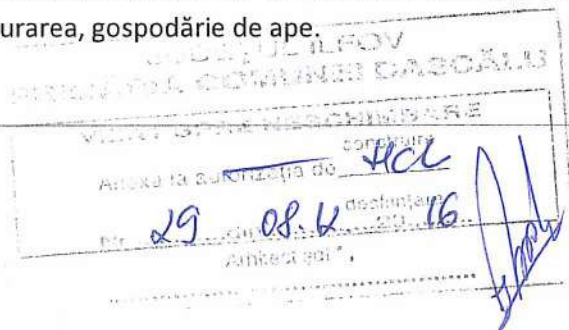 urarea, gospodărie de ape.
JUDEȚUL ILFOV
PRIMĂRIA COMUNEI DASCĂLU
VIZAT SPRE NESCHIMBARE
construire
Anexă la autorizația de HCL
desființare
Nr. 29 08. 20 16
Arhitect șef,